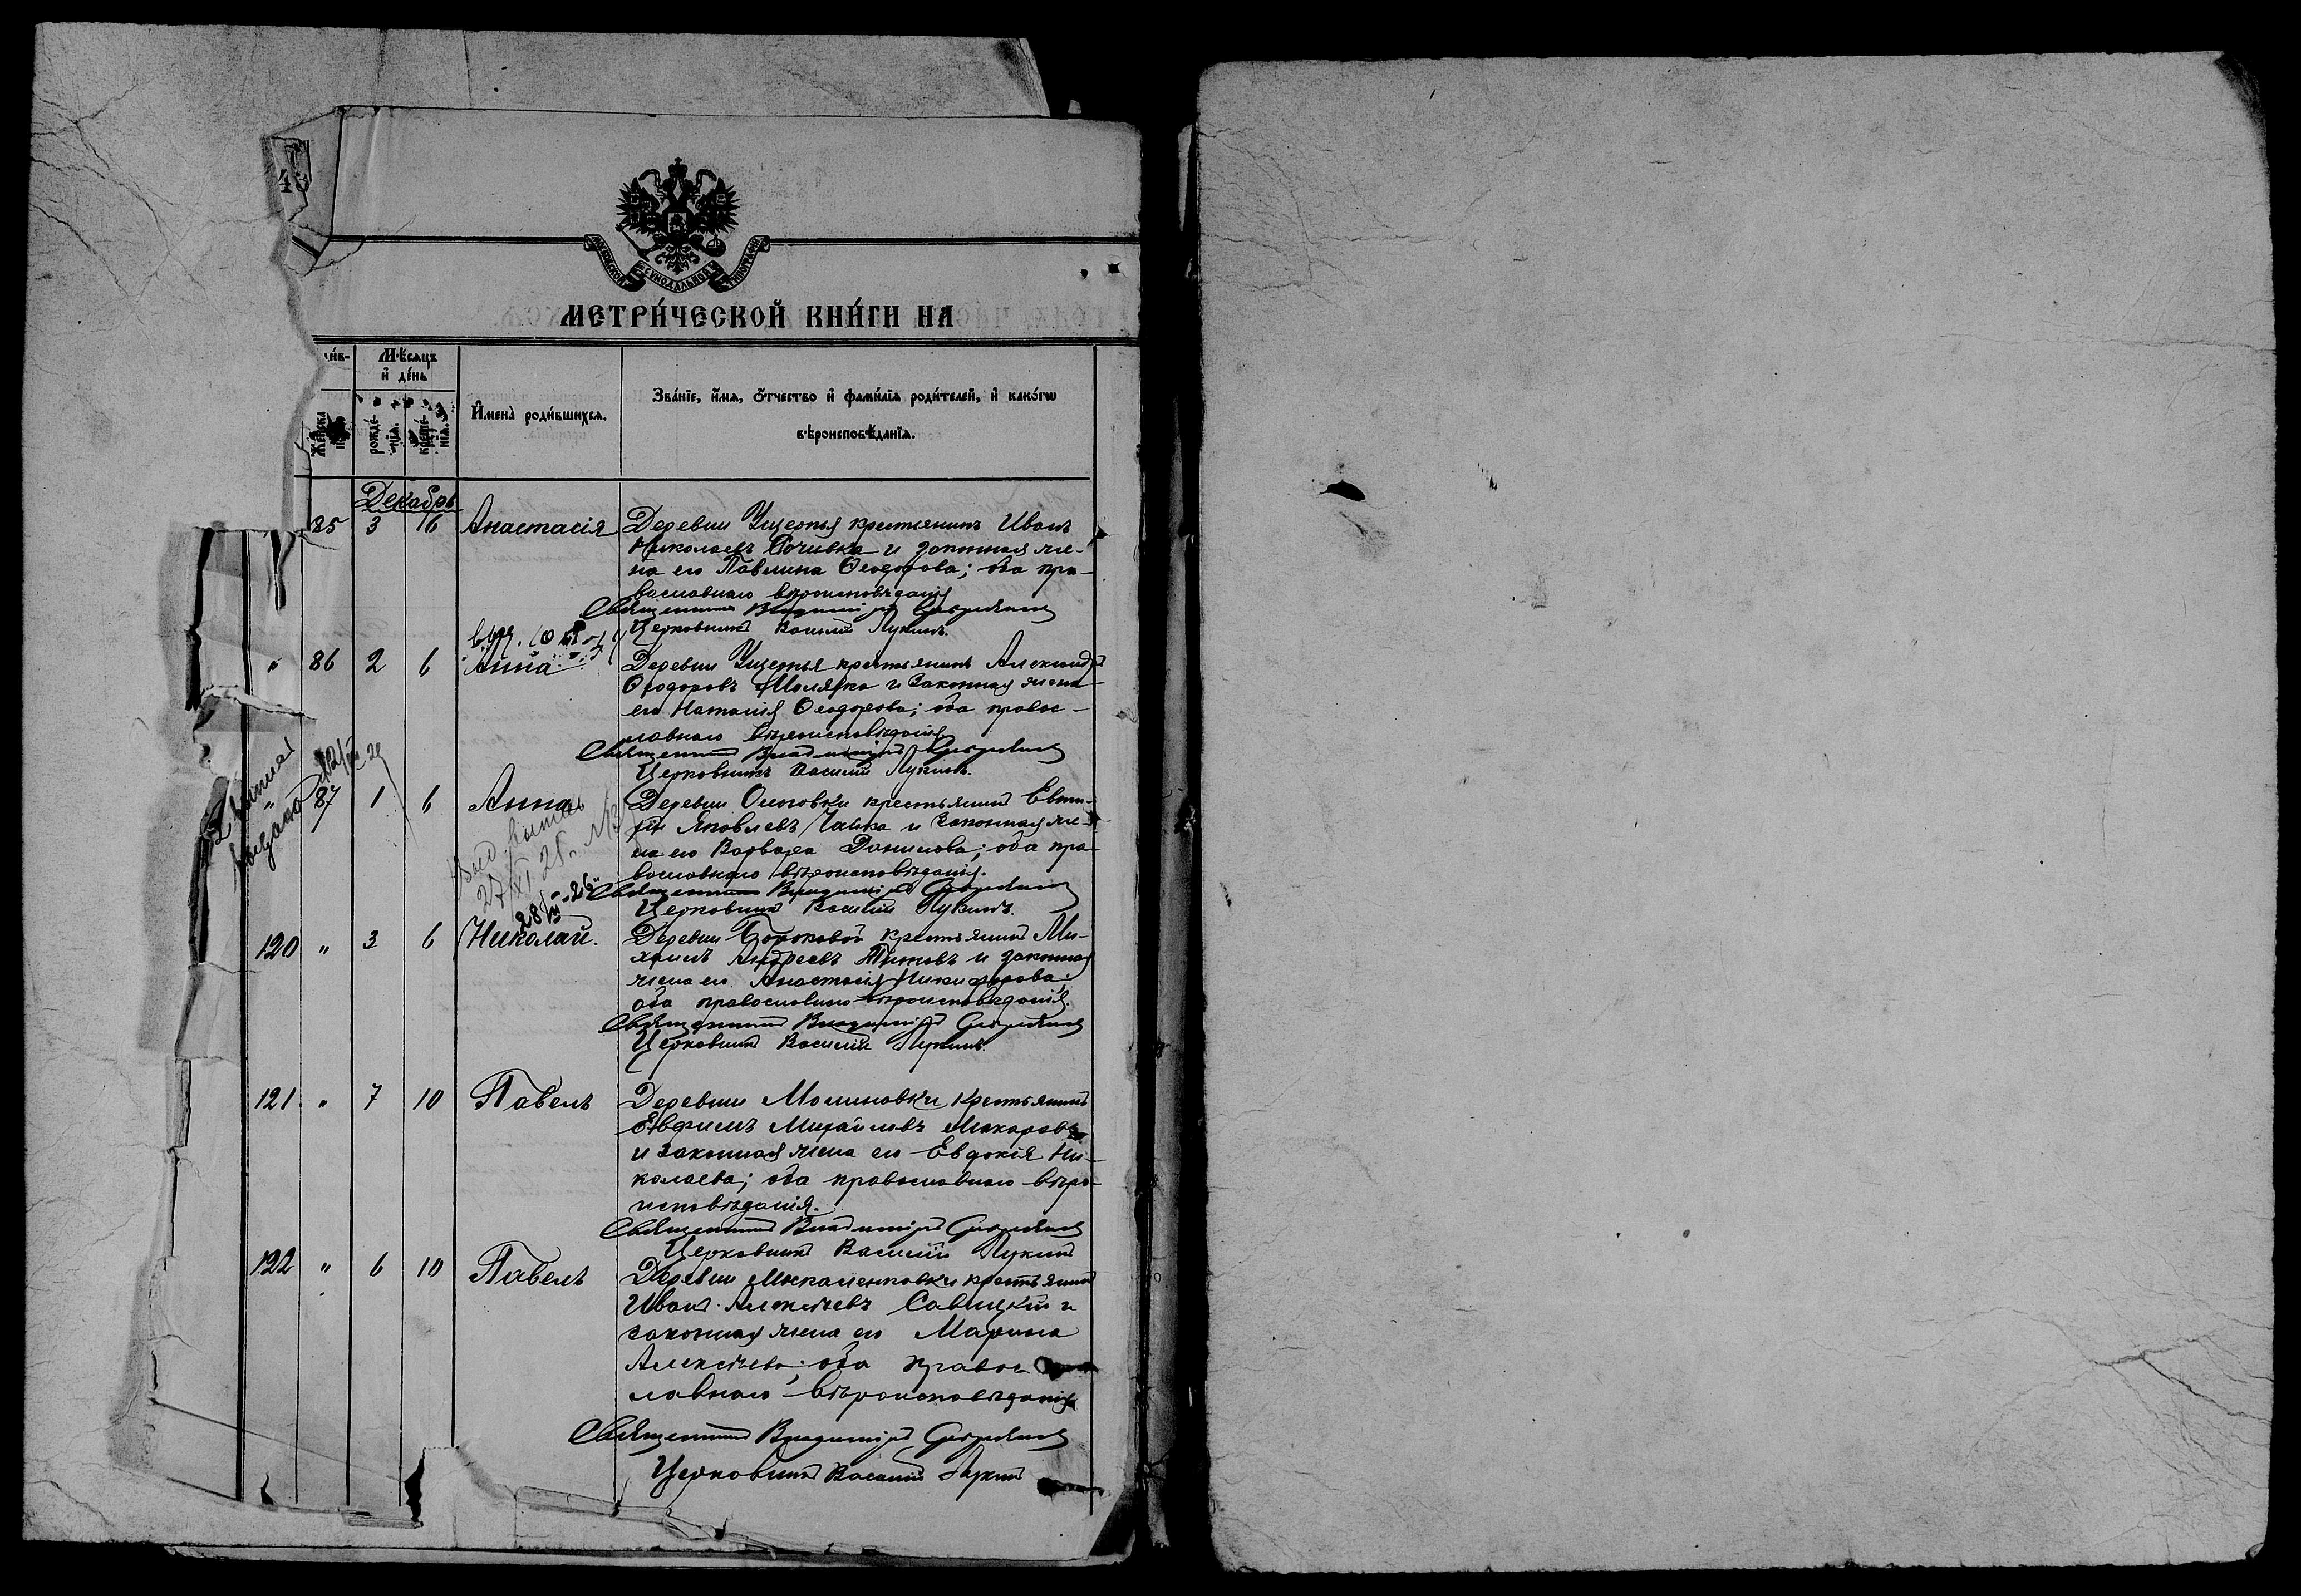 46
МОСКОВСКОЙ СѴНОДАЛЬНОЙ ТИПОГРАФІИ
МЕТРИ́ЧЕСКОЙ КНИ́ГИ НА
Мѣсяцъ
и҆ де́нь
Же́нска
рожде́-
нїѧ.
креще́-
нїѧ.
И҆мена̀ роди́вшихсѧ.
Зва́нїе, и҆́мѧ, ѻ҆́тчество и҆ фами́лїѧ роди́телей, и҆ како́гѡ
вѣроисповѣ́данїѧ.
Декабрь
85 3 6 Анастасія Деревни Ущерпья крестьянинъ Иванъ
Николаевъ и законная же-
на его Павлина Ѳеодорова; оба пра-
вославнаго вѣроисповѣданія
Священникъ Владиміръ
Церковникъ Василій Лукинъ.
" 86 2 6 Анна Деревни Ущерпья крестьянинъ Александръ
Ѳеодоровъ и законная жена
его Наталія Ѳеодорова; оба правос-
лавнаго вѣроисповѣданія
Священникъ Владиміръ
Церковникъ Василій Лукинъ.
" 87 1 6 Анна Деревни крестьянинъ
Яковлевъ Чайка и законная же-
на его Варвара Данилова; оба пра-
вославнаго вѣроисповѣданія.
Священникъ Владиміръ
Церковникъ Василій Лукинъ.
120 " 3 6 Николай. Деревни крестьянинъ Ми-
хаилъ Андреевъ и законная
жена его Анастасія Никифорова;
оба православнаго вѣроисповѣданія.
Священникъ Владиміръ
Церковникъ Василій Лукинъ.
121 " 7 10 Павелъ Деревни Малиновки крестьянинъ
Евфимъ Михайловъ Макаровъ
и законная жена его Евдокія Ни-
колаева; оба православнаго вѣро-
исповѣданія.
Священникъ Владиміръ
Церковникъ Василій Лукинъ
122 " 6 10 Павелъ Деревни крестьянинъ
Иванъ Алексѣевъ Савицкій и
законная жена его Марина
Алексѣева; оба правос-
лавнаго вѣроисповѣданія
Священникъ Владиміръ
Церковникъ Василій Лукинъ